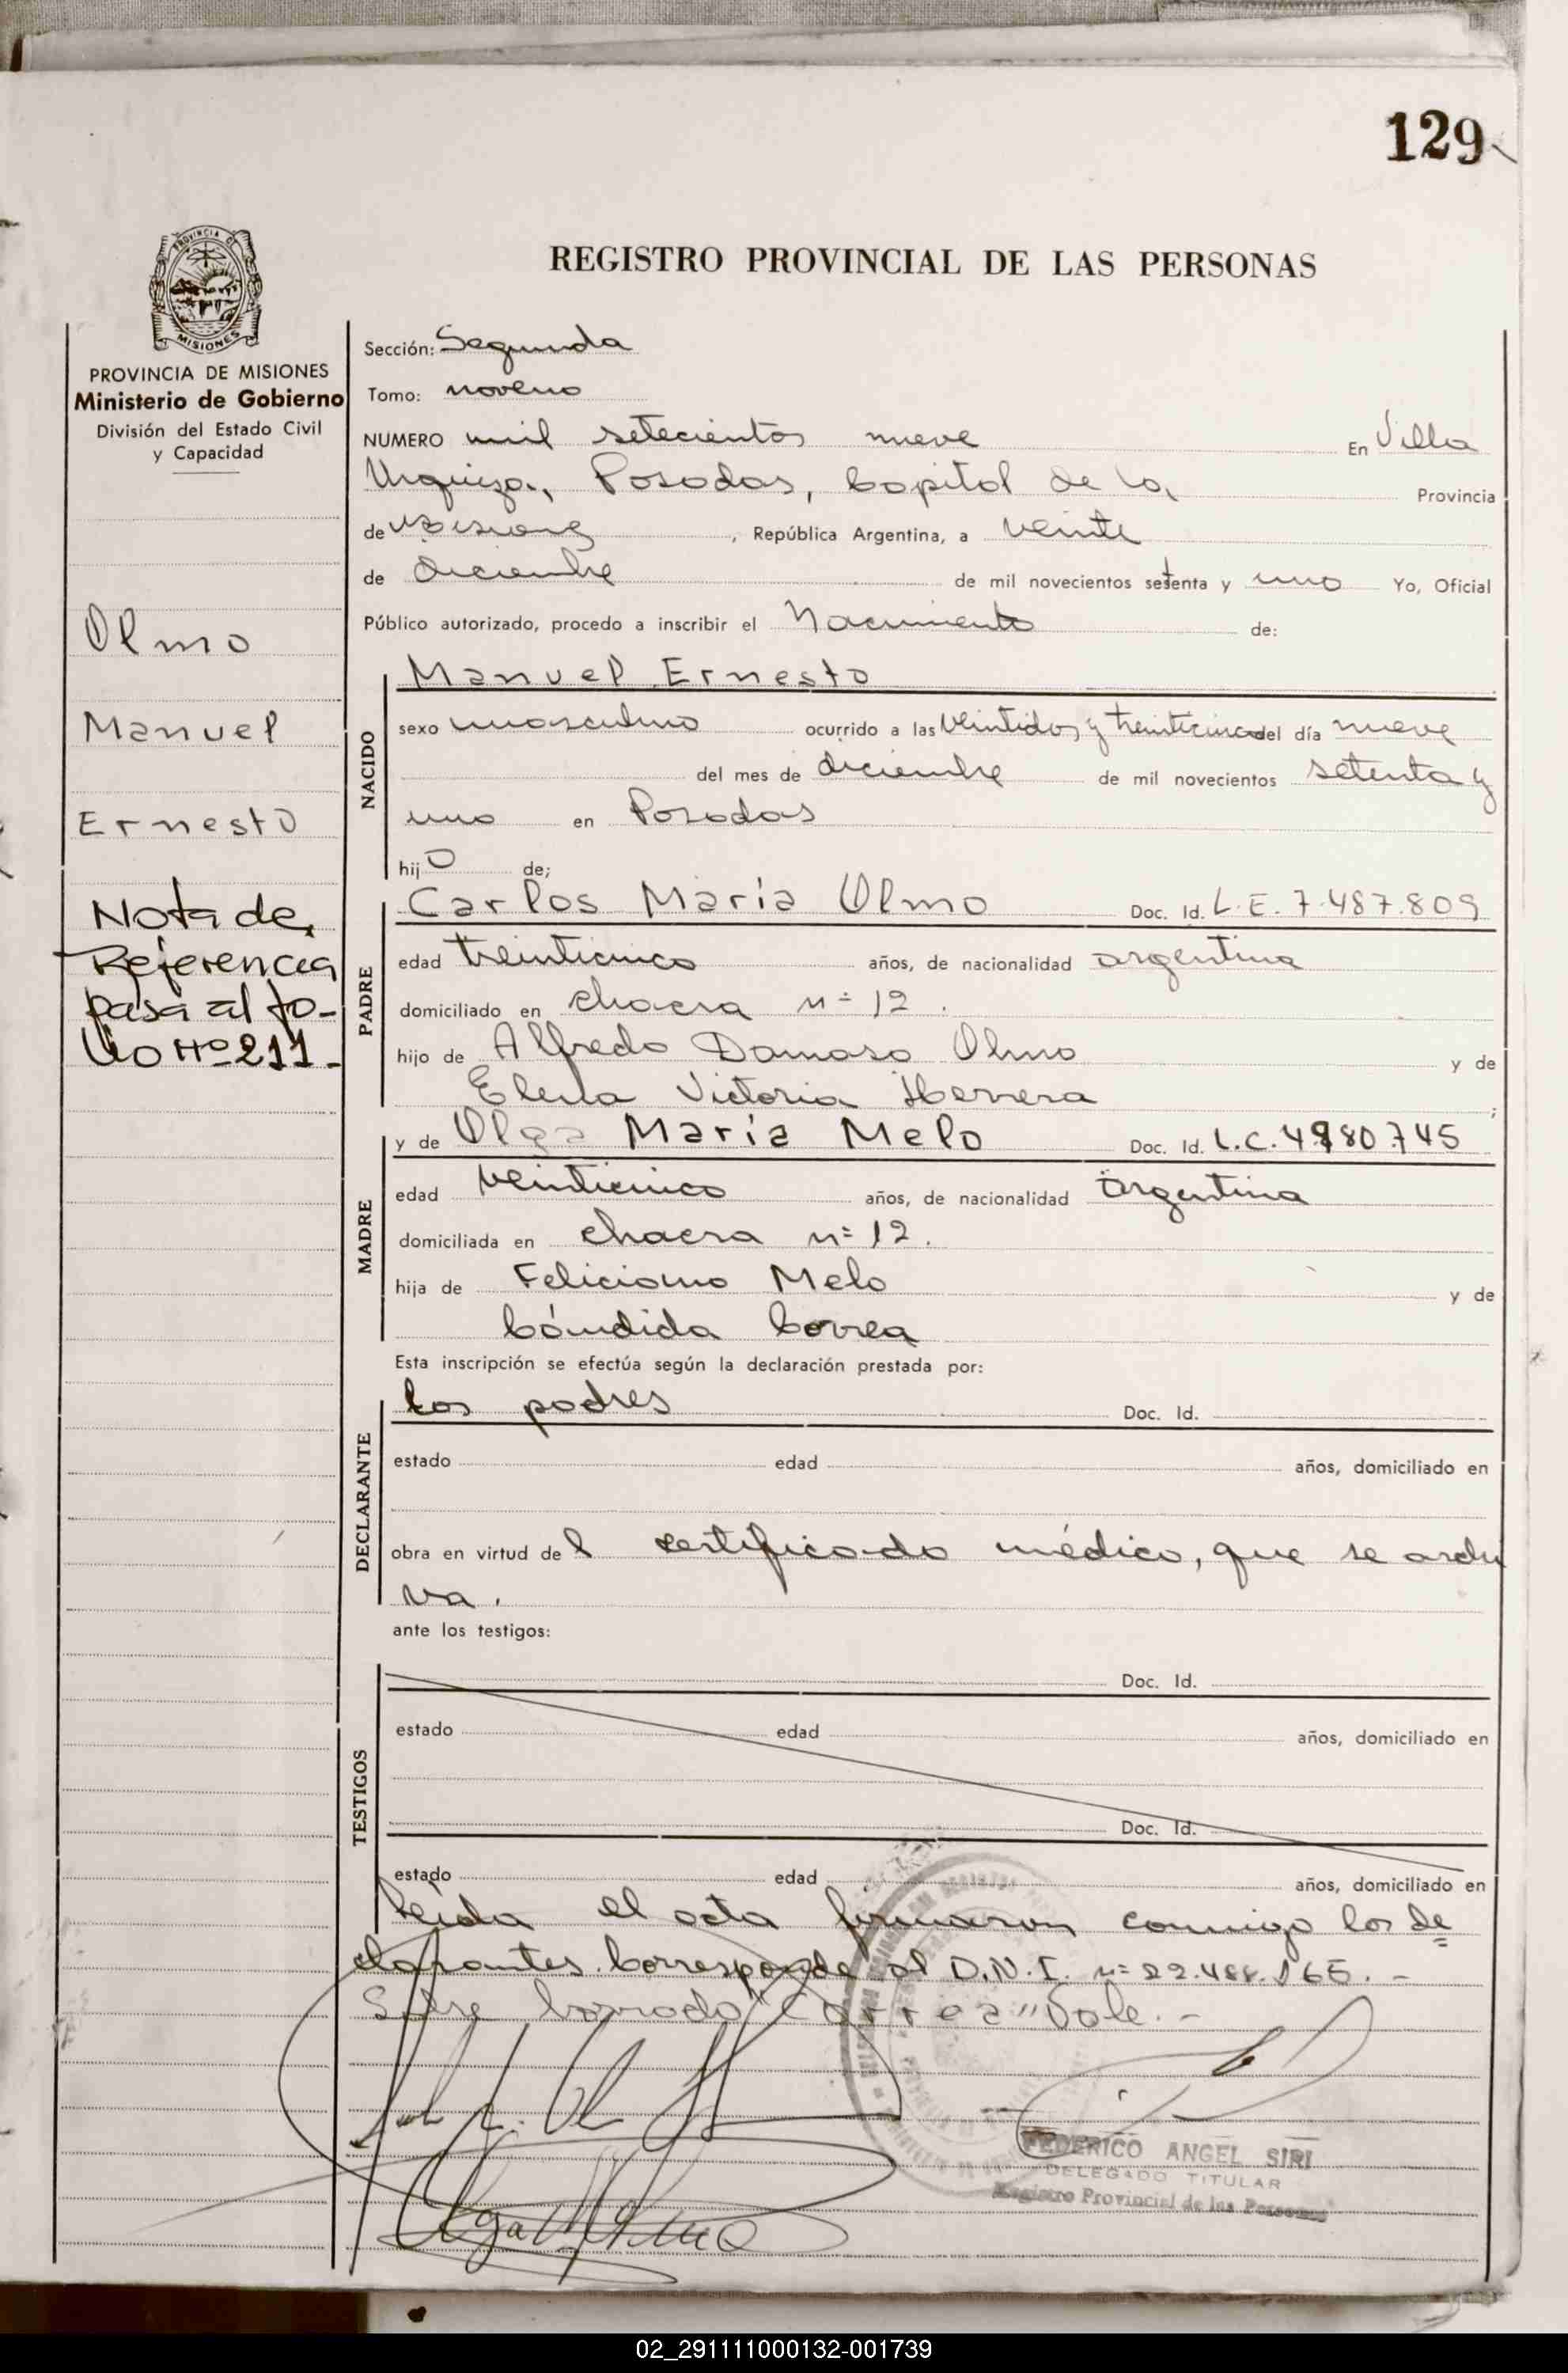 129
REGISTRO PROVINCIAL DE LAS PERSONAS
PROVINCIA DE
MISIONES
PROVINCIA DE MISIONES
Ministerio de Gobierno
División del Estado Civil
y Capacidad
Olmo
Manuel
Ernesto
Nota de
Referencia
pasa al fo-
lio Nº 211.-
Sección: Segunda
Tomo: noveno
NUMERO mil setecientos nueve En Villa
Urquiza, Posadas, Capital de la Provincia
de Misiones, República Argentina, a veinte
de diciembre de mil novecientos setenta y uno Yo, Oficial
Público autorizado, procedo a inscribir el Nacimiento de:
NACIDO
Manuel Ernesto
sexo masculino ocurrido a las veintidos y treinticinco del día nueve
del mes de diciembre de mil novecientos setenta y
uno en Posadas
hijo de;
PADRE
Carlos María Olmo Doc. Id. L.E. 7.487.809
edad treinticinco años, de nacionalidad argentina
domiciliado en chacra nº 12.
hijo de Alfredo Damaso Olmo y de
Elena Victoria Herrera;
MADRE
y de Olga María Melo Doc. Id. L.C. 4980.745
edad veinticinco años, de nacionalidad argentina
domiciliada en chacra nº 12.
hija de Feliciano Melo y de
Cándida Correa
Esta inscripción se efectúa según la declaración prestada por:
DECLARANTE
los padres Doc. Id.
estado edad años, domiciliado en
obra en virtud del certificado médico, que se archi
va.
ante los testigos:
TESTIGOS
Doc. Id.
estado edad años, domiciliado en
Doc. Id.
estado edad años, domiciliado en
Leída el acta firmaron conmigo los de=
clarantes. Corresponde al D.N.I. nº 22.488.165.-
Sobre borrado "Correa" Vale.-
FEDERICO ANGEL SIRI
DELEGADO TITULAR
Registro Provincial de las Personas
02_291111000132-001739